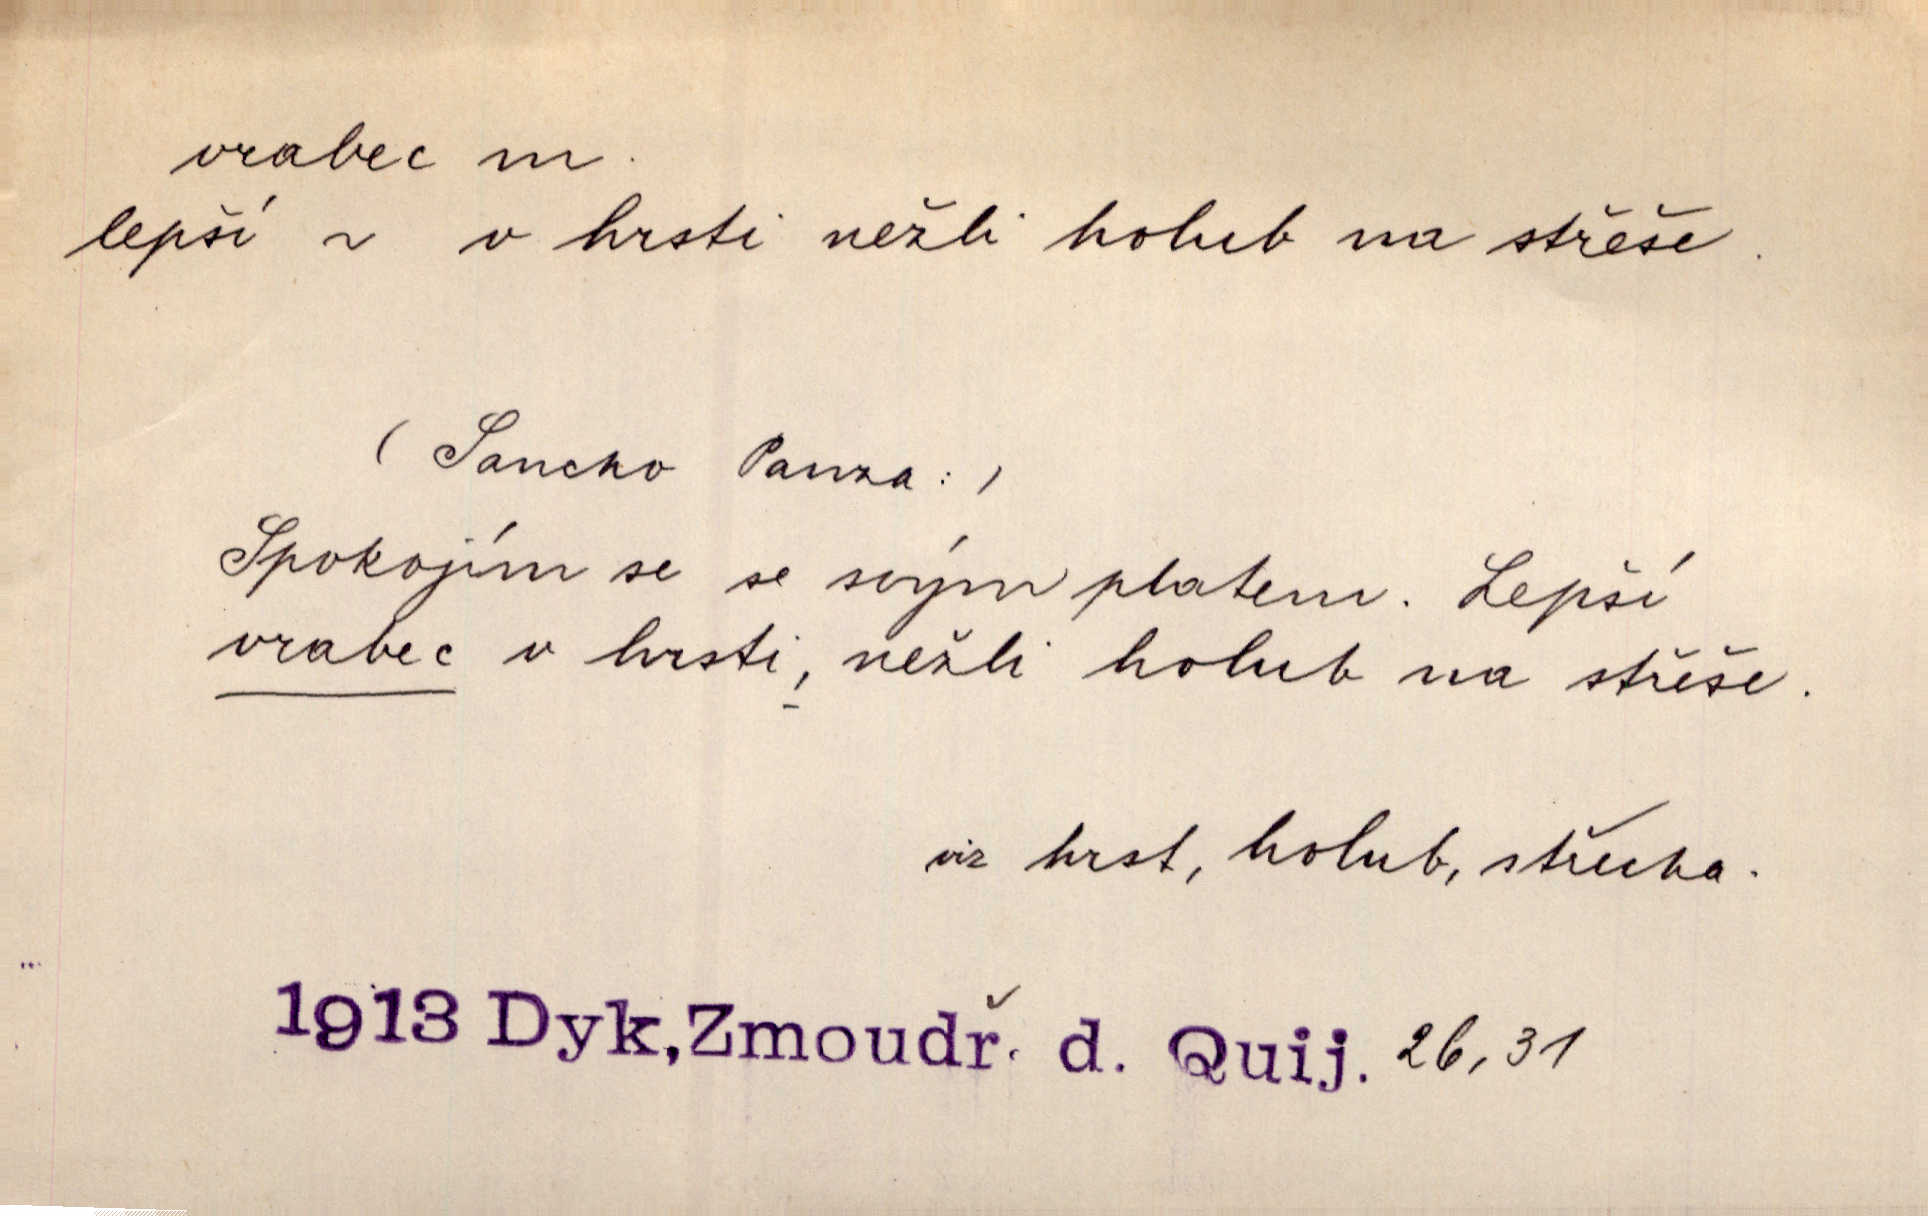 vrabec m.
lepší ~ v hrsti nežli holub na střeše.
(Sancho Panza:)
Spokojím se se svým platem. Lepší
vrabec v hrsti, nežli holub na střeše.
viz hrst, holub, střecha.
1913 Dyk, Zmoudř. d. Quij. 26, 31